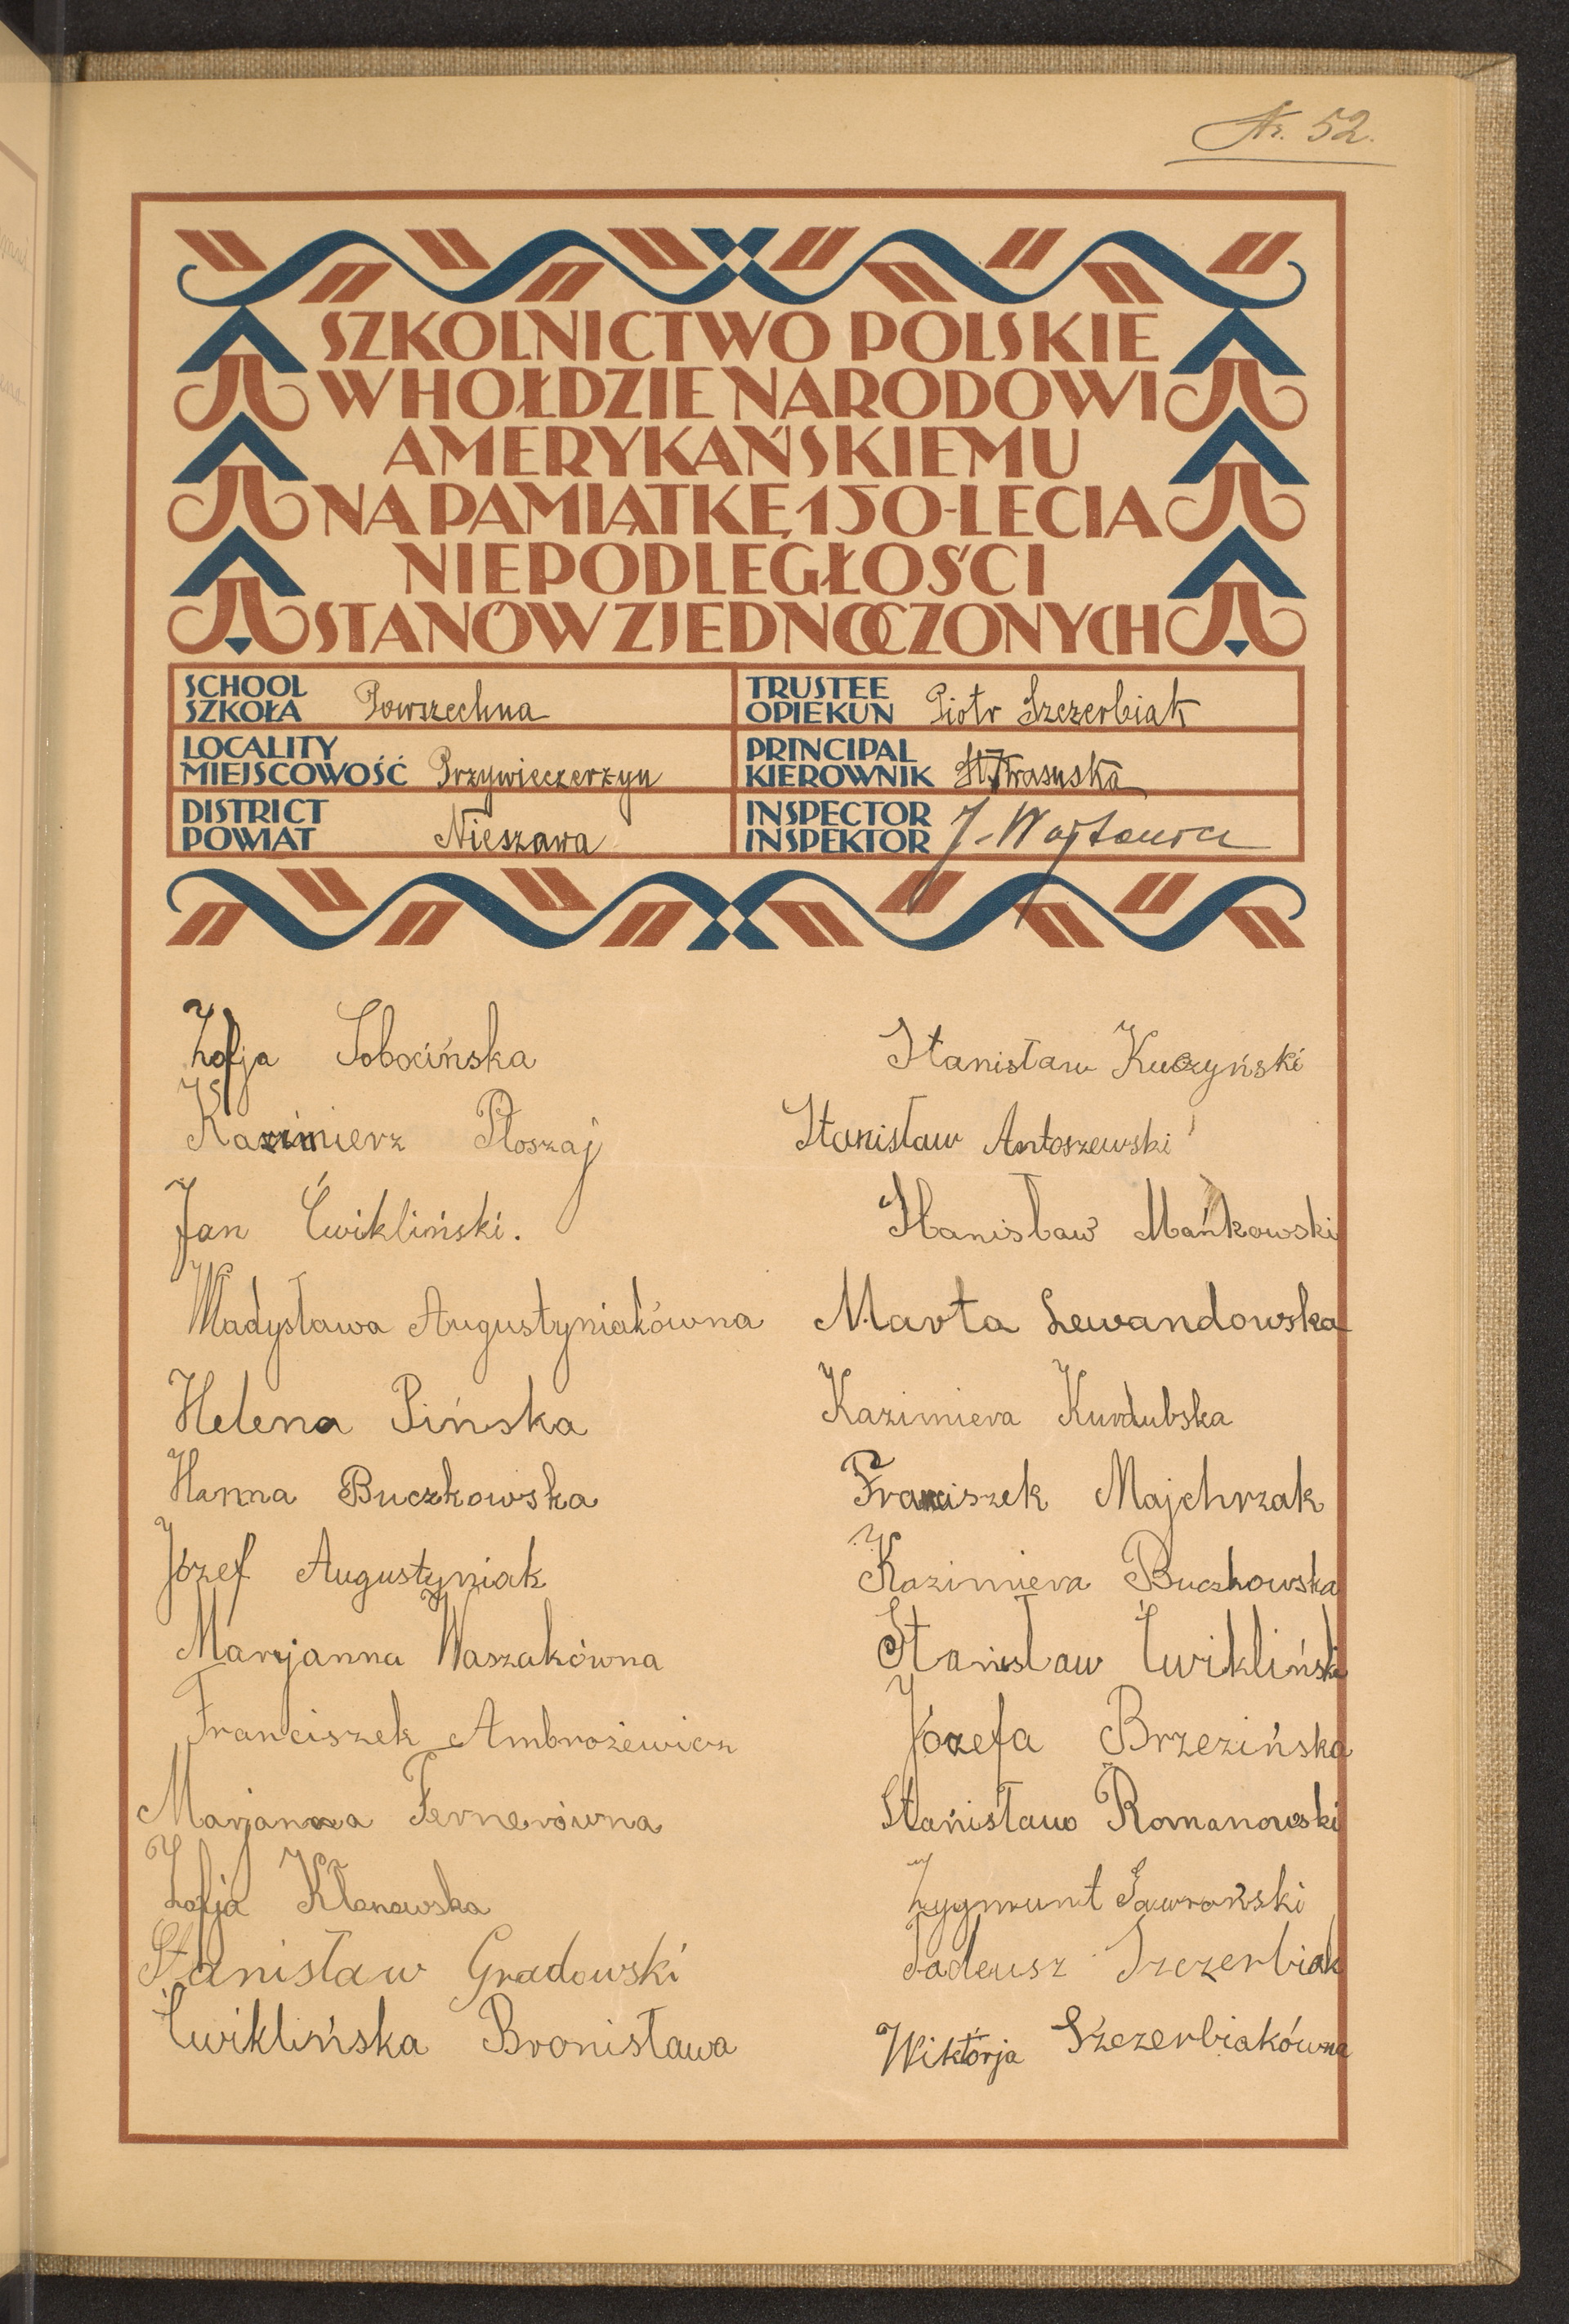 Nr. 52.
SZKOLNICTWO POLSKIE
W HOŁDZIE NARODOWI
AMERYKAŃSKIEMU
NA PAMIĄTKĘ 150-LECIA
NIEPODLEGŁOŚCI
STANÓW ZJEDNOCZONYCH
SCHOOL
SZKOŁA Powszechna
TRUSTEE
OPIEKUN Piotr Szczerbiak
LOCALITY
MIEJSCOWOŚĆ Przywieczerzyn
PRINCIPAL
KIEROWNIK
DISTRICT
POWIAT Nieszawa
INSPECTOR
INSPEKTOR J. Wojtowicz
Zofja Sobocińska
Kazimierz Płoszaj
Jan Ćwikliński.
Władysława Augustyniakówna
Helena Pińska
Hanna Buczkowska
Józef Augustyniak
Maryjanna Waszakówna
Franciszek Ambrożewicz
Marjanna Fernerówna
Zofja Kłanowska
Stanisław Gradowski
Ćwiklińska Bronisława
Stanisław Kuczyński
Stanisław Antoszewski
Stanisław Mańkowski
Marta Lewandowska
Kazimiera Kurdubska
Franciszek Majchrzak
Kazimiera Buczkowska
Stanisław Ćwikliński
Józefa Brzezińska
Stanisław Romanowski
Zygmunt Jawroński
Tadeusz Szczerbiak
Wiktorja Szczerbiakówna